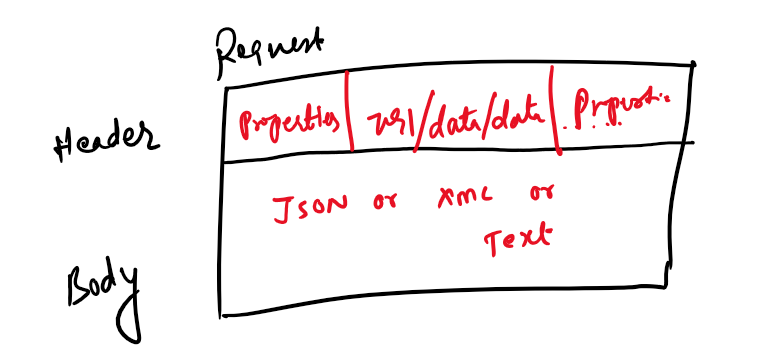 Request
Header
Properties url/data/data Properti...
JSON or XML or
Text
Body